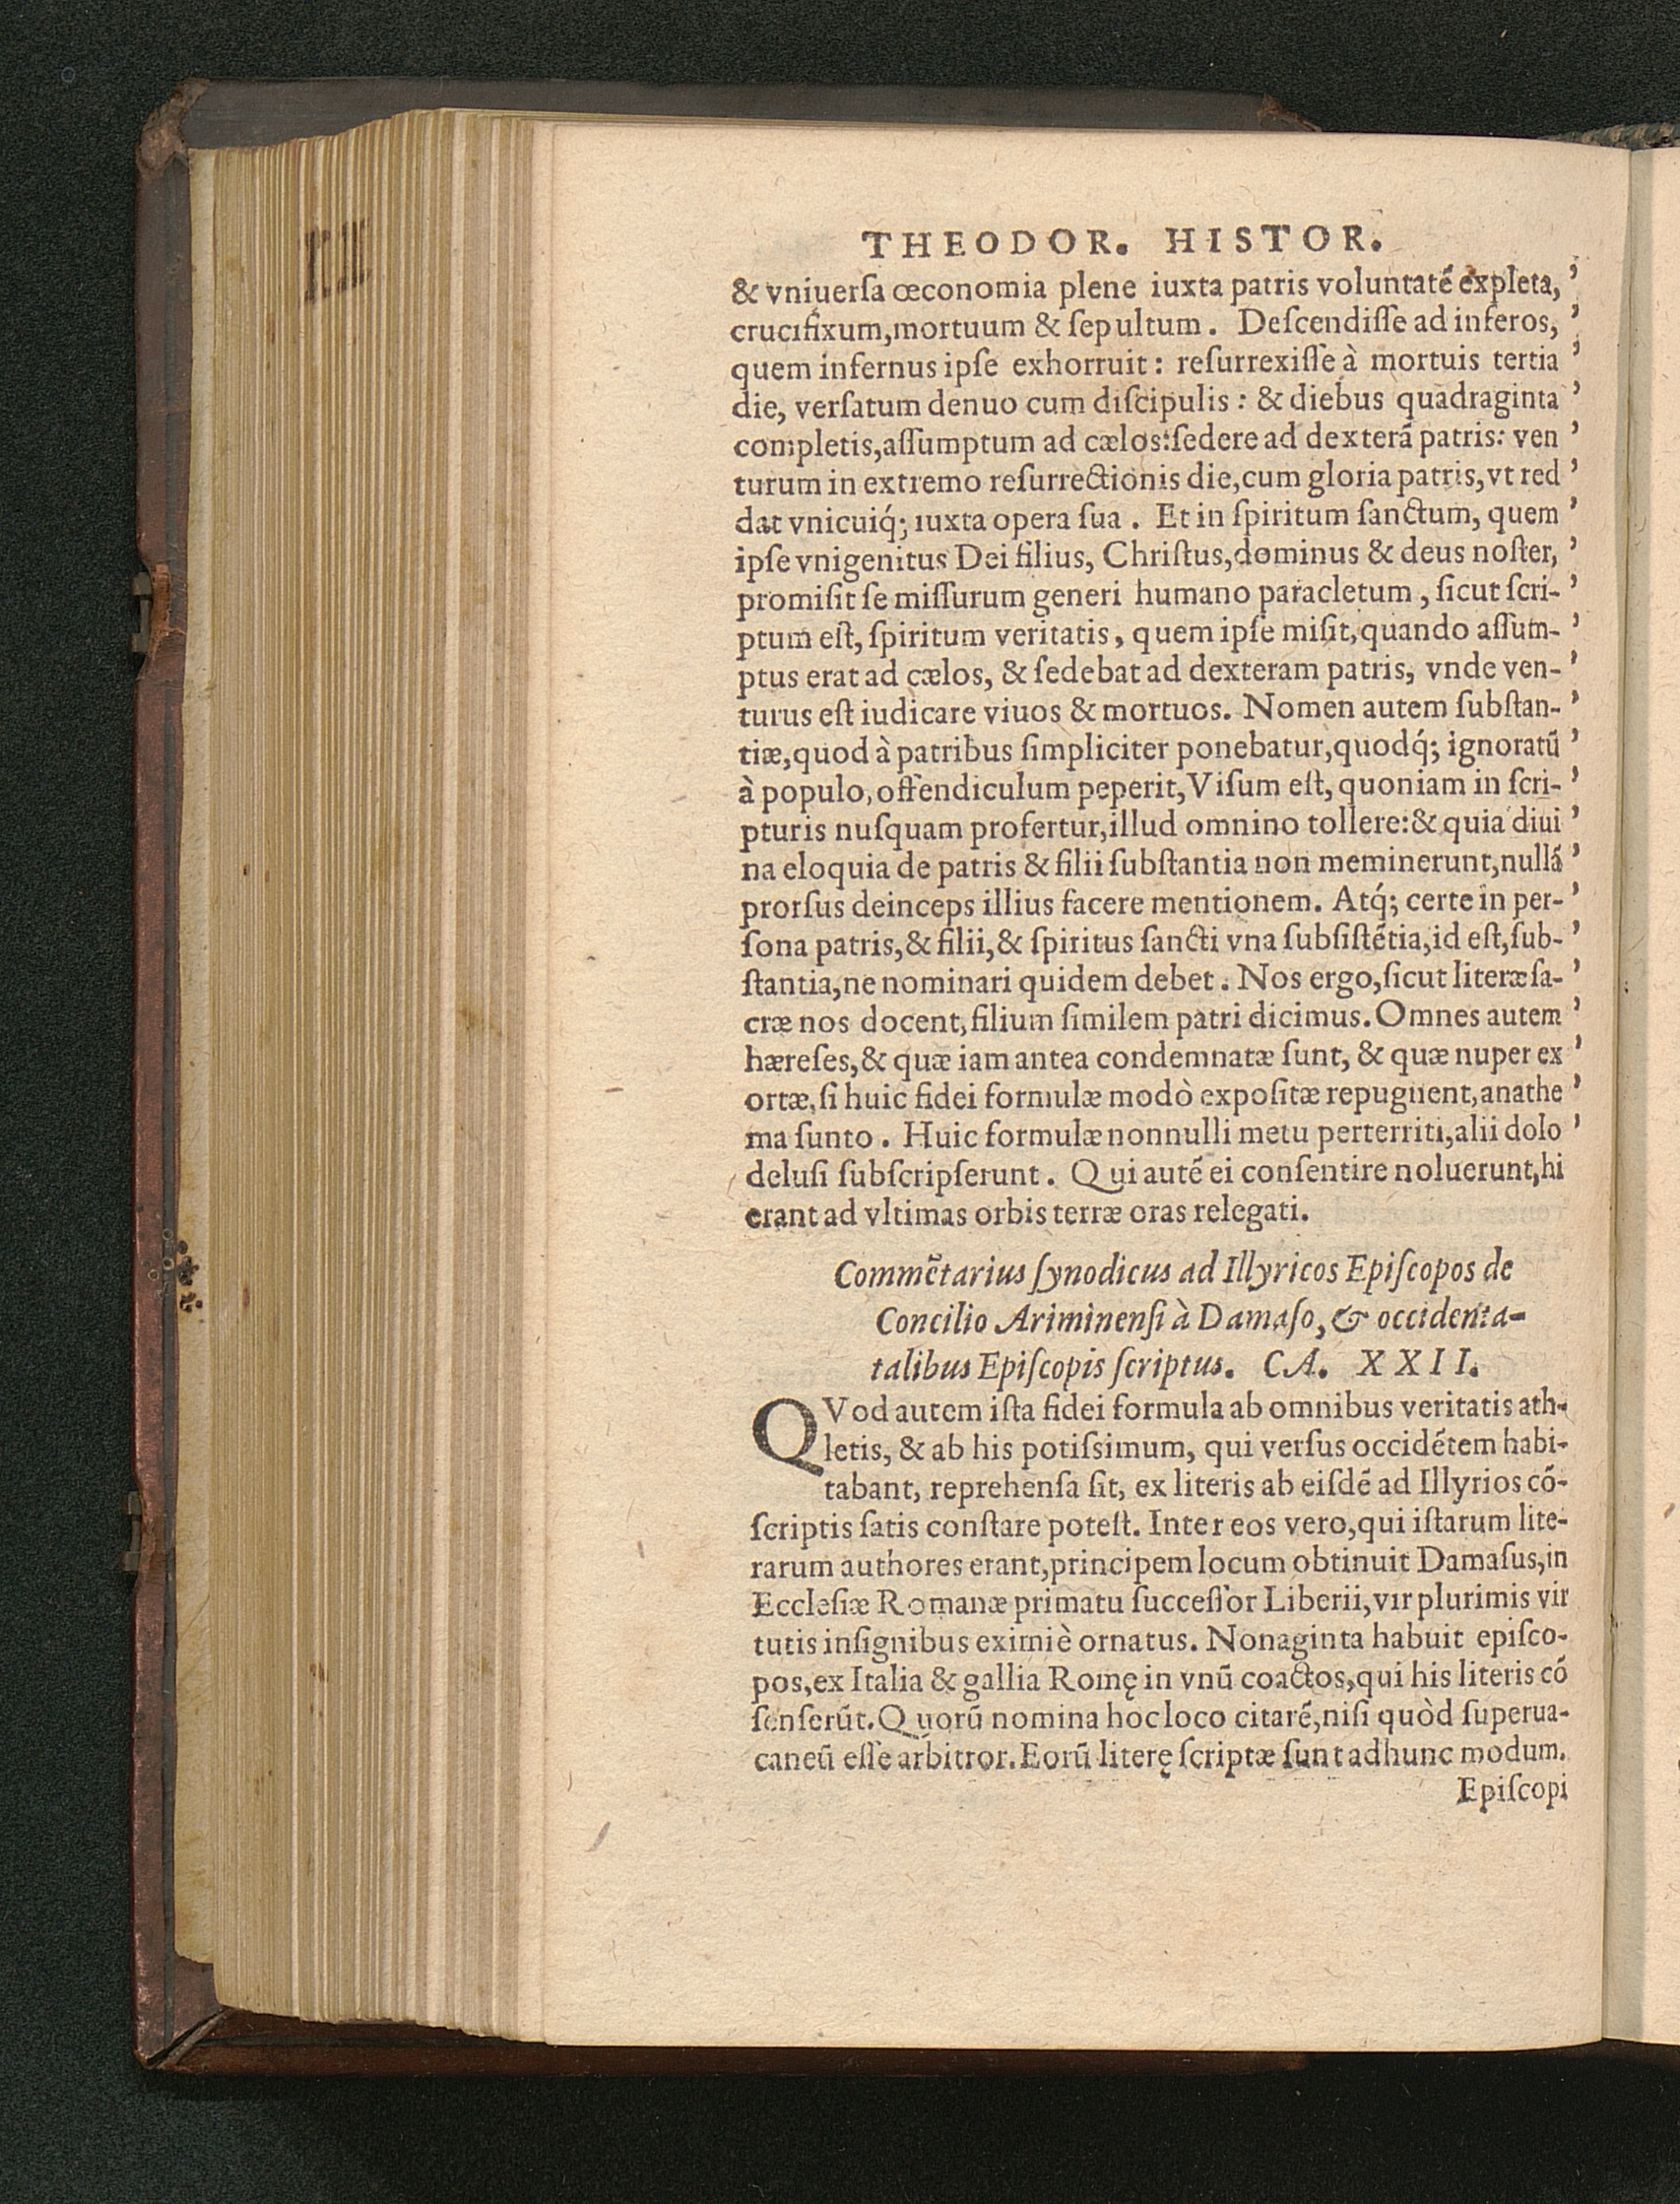 THEODOR. HISTOR.
& vniuerſa œconomia plene iuxta patris voluntatē expleta, ’
crucifixum,mortuum & ſepultum. Deſcendiſſe ad inferos, ’
quem infernus ipſe exhorruit: reſurrexiſſe à mortuis tertia ’
die, verſatum denuo cum diſcipulis: & diebus quadraginta ’
completis,aſſumptum ad cælos:ſedere ad dexterā patris: ven ’
turum in extremo reſurrectionis die,cum gloria patris,vt red ’
dat vnicuiq́; iuxta opera ſua. Et in ſpiritum ſanctum, quem ’
ipſe vnigenitus Dei filius, Chriſtus,dominus & deus noſter, ’
promiſit ſe miſſurum generi humano paracletum, ſicut ſcri- ’
ptum eſt, ſpiritum veritatis, quem ipſe miſit, quando aſſum- ’
ptus erat ad cælos, & ſedebat ad dexteram patris, vnde ven- ’
turus eſt iudicare viuos & mortuos. Nomen autem ſubſtan- ’
tiæ,quod à patribus ſimpliciter ponebatur,quodq́; ignoratū ’
à populo, offendiculum peperit, Viſum eſt, quoniam in ſcri- ’
pturis nuſquam profertur,illud omnino tollere:& quia diui ’
na eloquia de patris & filii ſubſtantia non meminerunt,nullā ’
prorſus deinceps illius facere mentionem. Atq́; certe in per- ’
ſona patris,& filii,& ſpiritus ſancti vna ſubſiſtētia,id eſt,ſub- ’
ſtantia,ne nominari quidem debet. Nos ergo,ſicut literæ ſa- ’
cræ nos docent, filium ſimilem patri dicimus. Omnes autem ’
hæreſes,& quæ iam antea condemnatæ ſunt, & quæ nuper ex ’
ortæ, ſi huic fidei formulæ modò expoſitæ repugnent,anathe ’
ma ſunto. Huic formulæ nonnulli metu perterriti,alii dolo ’
deluſi ſubſcripſerunt. Qui autē ei conſentire noluerunt,hi
erant ad vltimas orbis terræ oras relegati.
Commētarius ſynodicus ad Illyricos Epiſcopos de
Concilio Ariminenſi à Damaſo, & occidenta-
talibus Epiſcopis ſcriptus. CA. XXII.
QVod autem iſta fidei formula ab omnibus veritatis ath-
letis, & ab his potiſsimum, qui verſus occidētem habi-
tabant, reprehenſa ſit, ex literis ab eiſdē ad Illyrios cō-
ſcriptis ſatis conſtare poteſt. Inter eos vero,qui iſtarum lite-
rarum authores erant,principem locum obtinuit Damaſus,in
Eccleſiæ Romanæ primatu ſucceſſor Liberii,vir plurimis vir
tutis inſignibus eximiè ornatus. Nonaginta habuit epiſco-
pos,ex Italia & gallia Romę in vnū coactos,qui his literis cō
ſenſerūt.Quorū nomina hoc loco citarē,niſi quòd ſuperua-
caneū eſſe arbitror.Eorū literę ſcriptæ ſunt ad hunc modum.
Epiſcopi